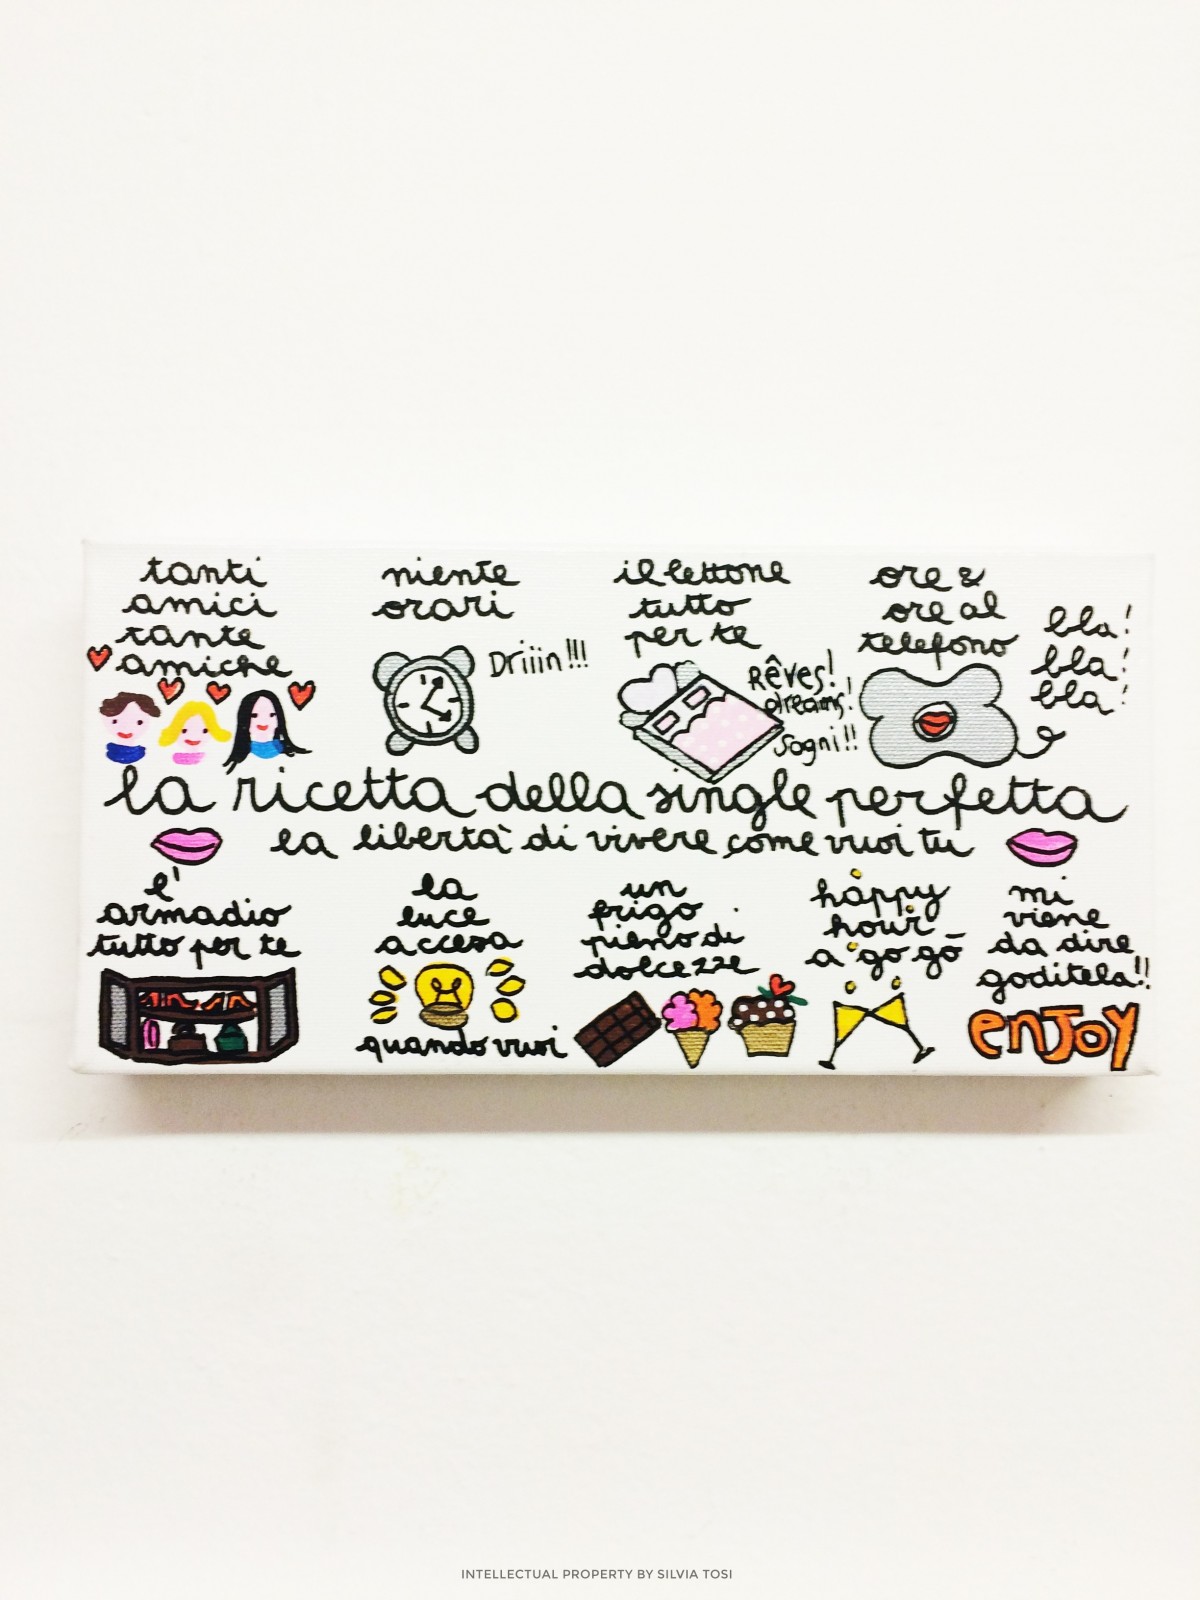 tanti
amici
tante
amiche
niente
orari
Driiin!!!
il lettone
tutto
per te
Rêves!
dreams!
sogni!!
ore &
ore al
telefono
bla!
bla!
bla!
la ricetta della single perfetta
la libertà di vivere come vuoi tu
l'
armadio
tutto per te
la
luce
accesa
quando vuoi
un
frigo
pieno di
dolcezze
happy
hour
a go gō
mi
viene
da dire
goditela!!
enjoy
INTELLECTUAL PROPERTY BY SILVIA TOSI